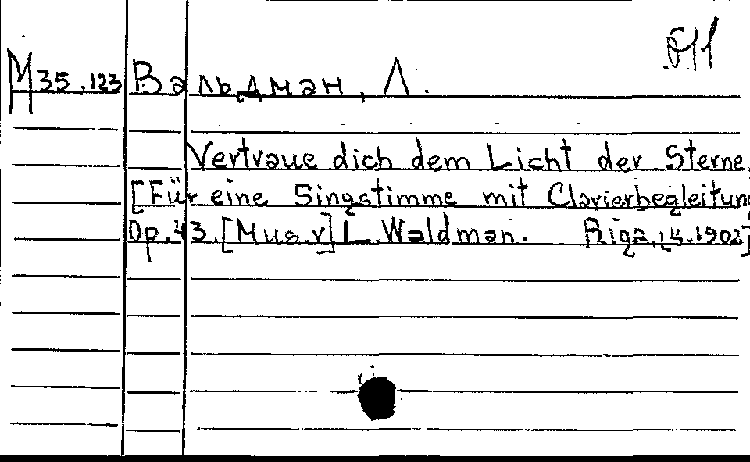 M35.123 Вальдман, Л.
Vertraue dich dem Licht der Sterne,
[Für eine Singstimme mit Clavierbegleitun
Op.43. [Mus.v] L. Waldman. Riga, [4.1902]